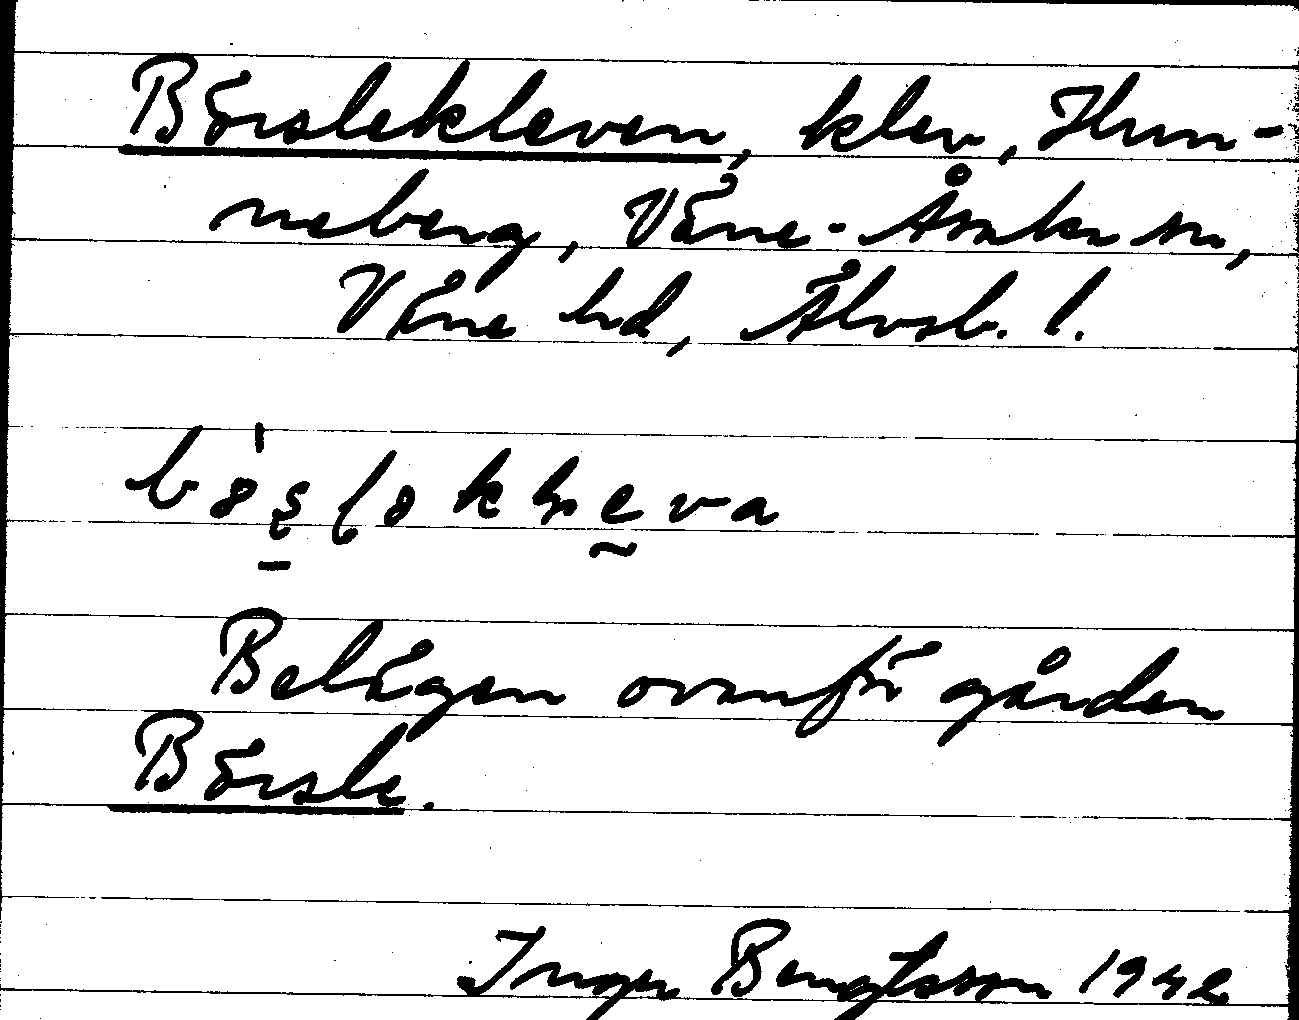 Börslekleven, klev, Hun-
neberg, Väne-Åsaka sn,
Väne hd, Älvsb. l.
Belägen ovanför gården
Börsle.
Inger Bengtsson 1942